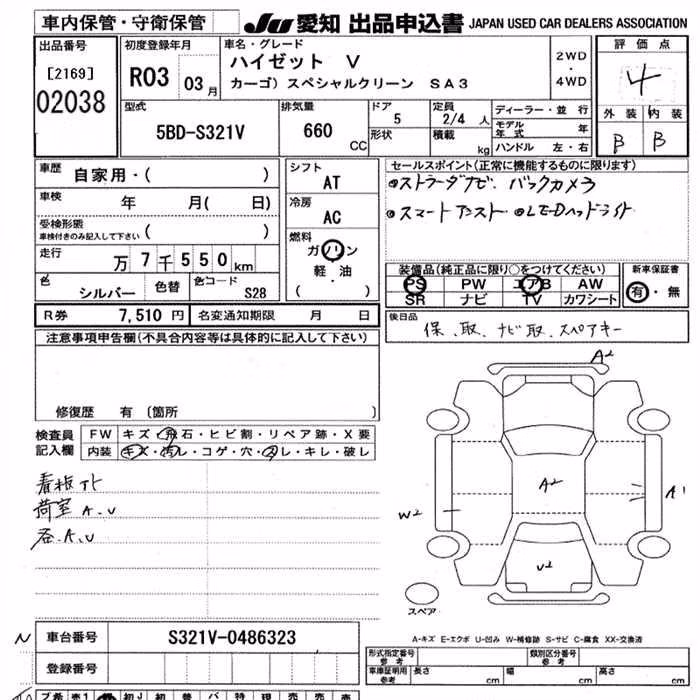 車内保管・守衛保管
JU 愛知 出品申込書 JAPAN USED CAR DEALERS ASSOCIATION
出品番号
[2169]
02038
初度登録年月
R03 03 月
車名・グレード
ハイゼット V
カーゴ) スペシャルクリーン SA3
2WD
・
4WD
評価点
4
外装 内装
B B
型式
5BD-S321V
排気量
660 CC
ドア
5
形状
定員
2/4 人
積載
kg
ディーラー・並行
モデル年式 年
ハンドル 左・右
車歴
自家用・( )
車検
年 月( 日)
受検形態
車検付きのみ記入して下さい ( )
走行
万 7 千 550 km
色
シルバー
色替
色コード
S28
シフト
AT
冷房
AC
燃料
ガソリン
軽・油
( )
セールスポイント(正常に機能するものに限ります)
●ストラーダナビ. バックカメラ
●スマートアシスト ●LEDヘッドライト
装備品(純正品に限り○をつけてください)
PS PW エアB AW
SR ナビ TV カワシート
新車保証書
有・無
R券 7,510 円 名変通知期限 月 日
後日品
保.取.ナビ取.スペアキー
注意事項申告欄(不具合内容等は具体的に記入して下さい)
修復歴 有 〔箇所 〕
検査員
記入欄
FW キズ・飛石・ヒビ割・リペア跡・X要
内装 キズ・汚レ・コゲ・穴・スレ・キレ・破レ
看板下ト
荷室 A.U
各.A.U
A2
A2
A1
W2
U2
スペア
A-キズ E-エクボ U-凹み W-補修跡 S-サビ C-腐食 XX-交換済
N
車台番号 S321V-0486323
登録番号
形式指定番号
参考
類別区分番号
参考
車庫証明用
参考
長さ cm 幅 cm 高さ cm